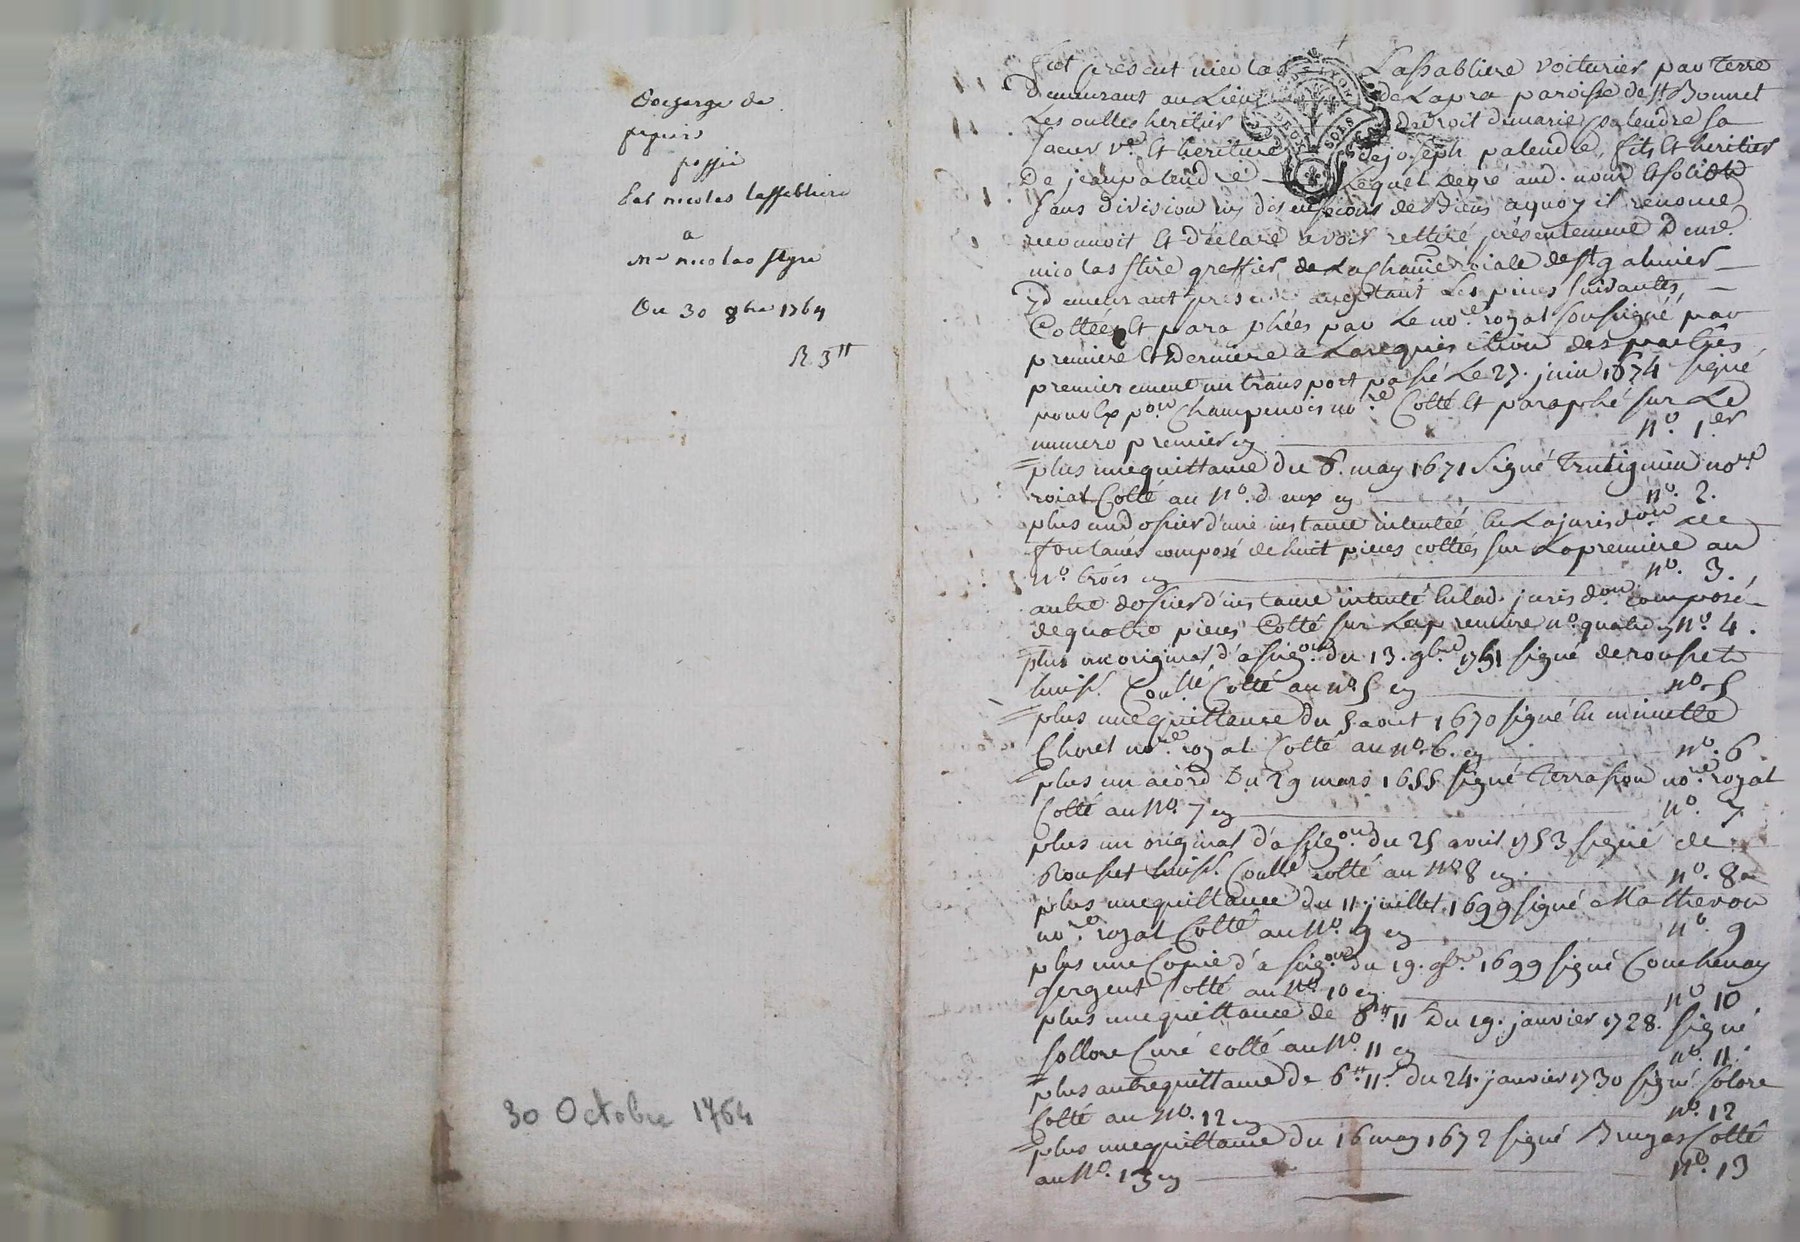 Decharge de
papiers
passé
Par nicolas lassabliere
a
Me nicolas stire
Du 30 8bre 1764
R. 3tt
30 Octobre 1764
fut present nicolas Lassabliere voiturier par terre
Demeurant au Lieu de Lapra paroisse de st Bonnet
Les oulles heritier Du droit de marie palendre sa
soeur ve Et heritiere de joseph palendre, fils Et heritier
De jean palendre Lequel de gré aud. nom Et solide
sans division ny discussions de Biens a quoy il renonce
reconnoit Et déclare avoir rettiré présentement De me
nicolas stire greffier de La chatie roiale de st galmier
y demeurant present acceptant Les pieces suivantes
Cottées Et paraphées par Le nore royal soussigné par
premiere Et Derniere a La requisition des parties
premierement un transport passé Le 27. juin 1674 signé
pour expon Champenois nore Cotté Et paraphé sur Le
numero premier cy no. 1er
plus une quittance du 6. may 1671 signé nore
roial Cotté au no. deux cy no. 2.
plus un dossier d'une instance intentée En La jurisdon de
fontanès composé de huit pieces cottées sur La premiere au
no. trois cy no. 3.
autre dossier d'instance intenté En lad. jurisdon composé
de quatre pieces Cotté sur La premiere no. quatre cy no. 4.
plus un original d'assigon du 13. 9bre 1751 signé de rousset
huiss. Coutté Cotté au no 5 cy no. 5
plus une quittance du 5 aout 1670 signé En minutte
Chorel nore royal Cotté au no. 6. cy no. 6
plus un acord Du 29 mars 1655 signé Terrasson nore royal
Cotté au no. 7 cy no. 7
plus un original d'assigon. du 25 avril 1753 signé de
Rousset huiss. Coutté cotté au no 8 cy no. 8
plus une quittance du 11. juillet 1699 signé Mathevon
nore royal Cotté au no. 9 cy no. 9
plus une Copie d'assigon du 19. 9bre 1699 signé Couchenay
sergent Cotté au no 10 cy no 10
plus une quittance de 6tt 11 Du 19. janvier 1728. signé
sollore Curé cotté au no. 11 cy no. 11.
plus autre quittance de 6tt 11s du 24. janvier 1730 signé solore
Cotté au no. 12 cy no. 12
plus une quittance du 16 may 1672 signé Bruyas Cotté
au no. 13 cy no. 13